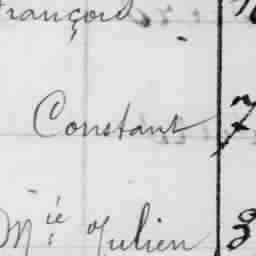 François
Constant 7
Mié Julien 8